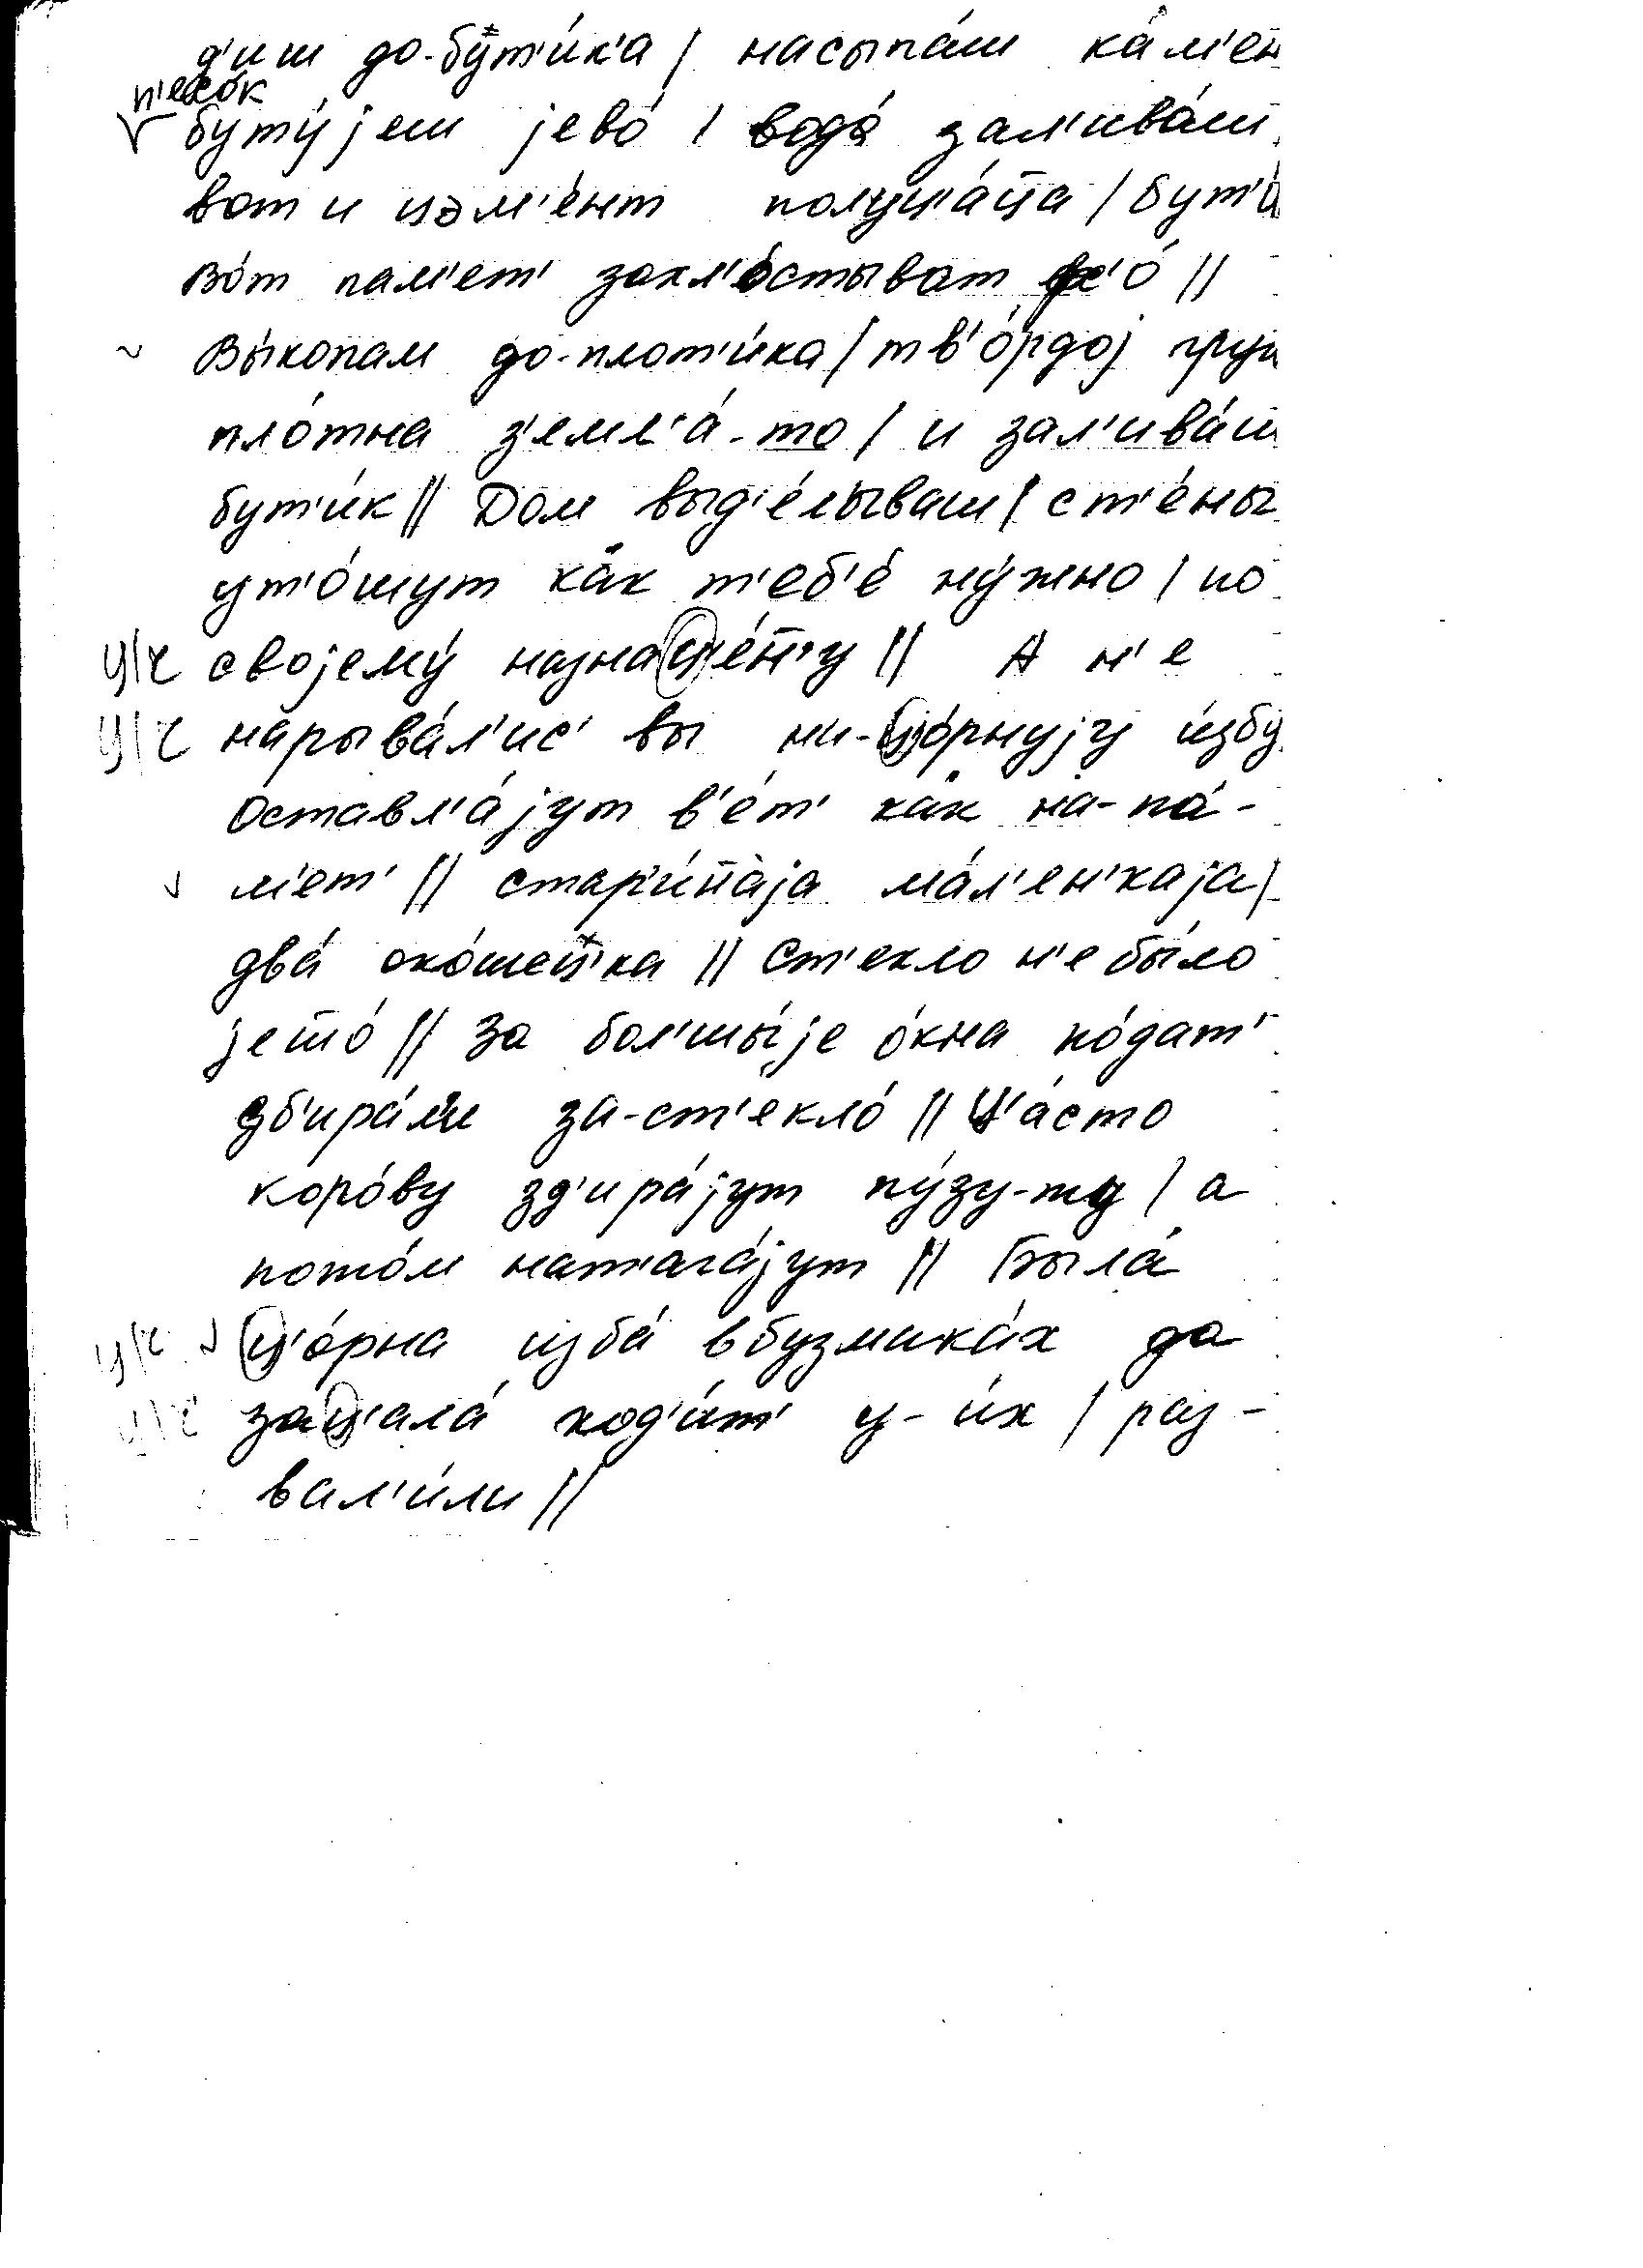 д'иш до-бут'и́к'а / насыпа́ш ка́м'ен
п'есо́к
буту́јеш јево́ / вода́ зал'ива́ш
вот и цэм'е́нт полуц'а́ц̄а / бут'и́
во́т пам'ет' захл'о́стыват вс'о́ //
~ вы́копам до-плот'и́ка / тв'о́рдој грун
пло́тна з'емл'а́-то / и зал'ива́ш
бут'и́к // Дом выд'е́лываш / ст'е́ны
ут'о́шут ка́к т'еб'е́ ну́жно / по
ц/ч својему́ назнац'е́н̄'у // А н'е
ц/ч нарыва́л'ис' вы ни-ц'о́рнују избу́
оставл'а́јут в'е́т' ка́к на-па́-
м'ет' // стар'и́н̄аја ма́л'ен'каја /
два́ око́шец'ка // Ст'екло н'е бы́ло
јешо́ // За бол'шы́је о́кна по́дат'
зб'ира́ли за-ст'екло́ // Ц'а́сто
коро́ву зд'ира́јут пу́зу-ту / а
пото́м нат'ага́јут // Была́
ц/ч ц'о́рна изба́ в бузмика́х да
ц/ч зац'ала́ ход'и́т' у-и́х / раз-
вал'и́ли //